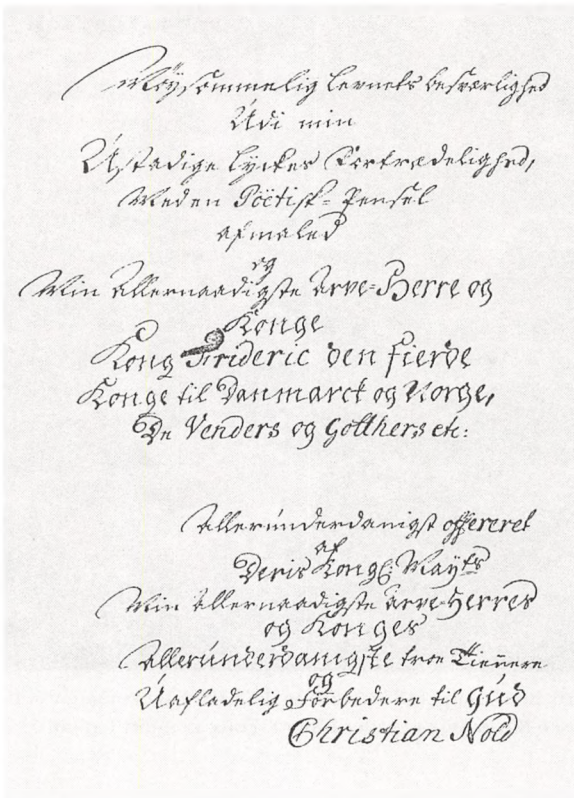 Møysommelig Levnets besværlighed
Udi min
Ustadige Lyckes Fortrædelighed,
Meden Pöetisk-Pensel
afmaled
og
Min Allernaadigste Arve-Herre og
Konge
Kong Frideric den Fierde
Konge til Danmarck og Norge,
De Venders og Gotthers etc:
Allerúnderdanigst offereret
af
Deris Kongl: Mayts
Min Allernaadigste Arve-Herres
og Konges
Allerúnderdanigste troe Tienere
og
Úafladelig Forbedere til Gúd
Christian Nold